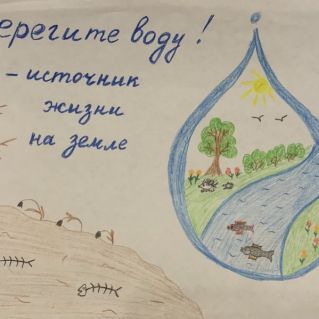 ерегите воду!
- источник
жизни
на земле